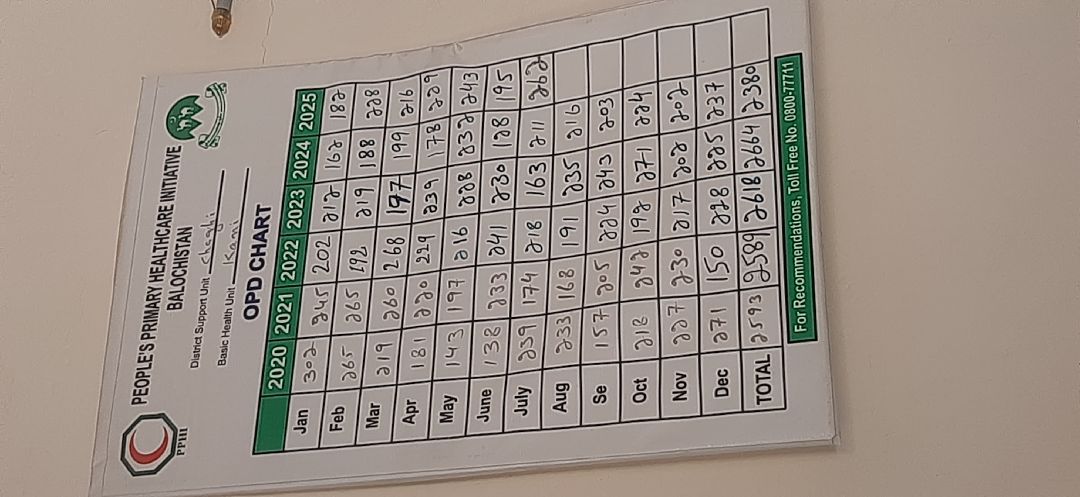 PPHI
PEOPLE'S PRIMARY HEALTHCARE INITIATIVE
BALOCHISTAN
District Support Unit chaghi
Basic Health Unit
OPD CHART
2020 2021 2022 2023 2024 2025
Jan 302 245 202 212 162 182
Feb 265 265 192 219 188 228
Mar 219 260 268 197 199 216
Apr 181 220 229 239 178 229
May 143 197 216 228 232 243
June 138 233 241 230 128 195
July 239 174 218 163 211 262
Aug 233 168 191 235 216
Se 157 205 224 243 203
Oct 218 242 192 271 224
Nov 227 230 217 202 202
Dec 271 150 228 225 237
TOTAL 2593 2589 2618 2664 2380
For Recommendations, Toll Free No. 0800-77711